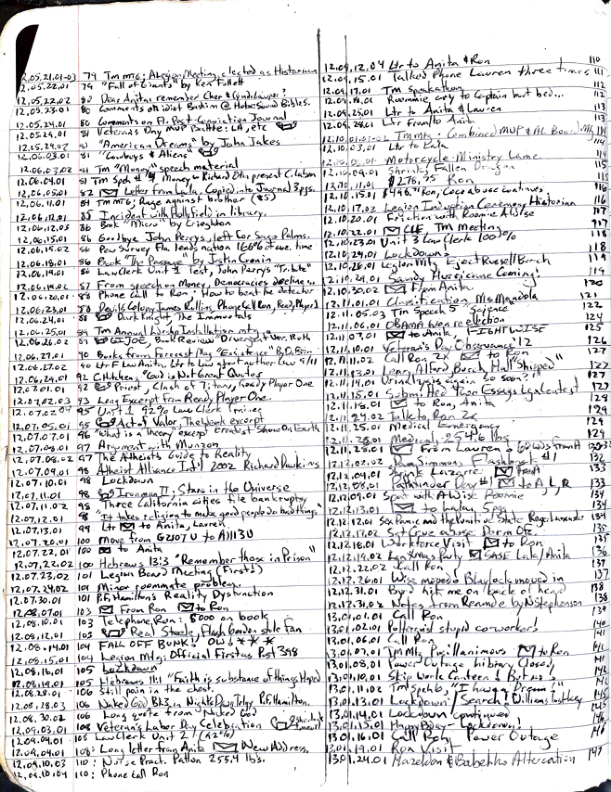 12.05.21.01-03 79 Tm mtg; Legion Meeting, elected as Historian
12.05.22.01 79 "Fall of Giants" by Ken Follett
12.05.22.02 80 Dear Anita: remember Char &
12.05.23.01 80 Comments on idiot @ Hobe Sound Bibles.
12.05.24.01 80 Comments on Fl. Post Conviction Journal
12.05.29.01 81 Veterans Day MVP Palette: LA, etc
12.15.29.02 81 "American Dreams" by John Jakes
12.06.03.01 81 "Cowboys & Aliens"
12.06.03.02 81 Tm "Money" speech material
12.06.04.01 81 Tm Spch #9 Money & Richard Oth present Citation
12.06.05.01 82 Letter from Lyla. Copied into Journal 3pgs.
12.06.11.01 84 Tm mtg; Rage against brother (85)
12.06.12.01 85 Incident with Hollfield in library.
12.06.12.03 86 Book "Micro" by Crieghton
12.06.15.01 86 Goodbye John Perrys, left for Palms.
12.06.15.02 86 Pew Survey Fla leads nation 166% time
12.06.18.01 86 Book "The Passage" by Justin Cronin
12.06.19.01 86 Law Clerk Unit 1 Test, John Perrys "Tribute"
12.06.19.02 87 From speech on Money, Democracies decline...
12.06.20.01 88 Phone Call to Ron: How to beat the detector
12.06.23.01 88 James Rollins, Phone Call Ron, Ready Player 1
12.06.24.01 88 Dark Knight, The Immortals
12.06.25.01 89 Tm Annual Awards Installation mtg
12.06.26.02 89 GI JOE, Book Review "Divergent" Ver. Roth
12.06.27.01 90 Books from Forecast Mag "Existence" By D. Brin
12.06.27.02 90 Ltr Law Anita. Ltr to Law about author Law 9/11
12.06.29.01 92 C. Hitchens "God is Not Great" Quotes
12.07.01.01 93 Priest, Clash of Titans, Ready Player One
12.07.02.03 93 Long Excerpt from Ready Player One.
12.07.02.04 95 Unit 1 92% Law Clerk
12.07.05.01 95 Act of Valor, The book excerpt
12.07.07.01 96 "What is a Theory" excerpt Greatest Show On Earth
12.07.08.01 97 Argument with Munzon
12.07.08.02 97 The Atheist's Guide to Reality
12.07.09.01 98 Atheist Alliance Int'l 2002 Richard Dawkins
12.07.10.01 98 Lockdown
12.07.11.01 98 Ironman II; Stars in the Universe
12.07.11.02 98 Three California cities file bankruptcy
12.07.12.01 98 "It takes religion to make good people do bad things"
12.07.13.01 99 Ltr to Anita, Lauren
12.07.20.01 100 Move from G2107U to A1113U
12.07.22.01 100 to Anita
12.07.22.02 100 Hebrews 13:3 "Remember those in Prison"
12.07.23.02 101 Legion Board Meeting (First)
12.07.24.02 101 Minor roommate problem.
12.07.30.01 101 P.F. Hamilton's Reality Dysfunction
12.08.07.01 103 From Ron to Ron
12.08.10.01 103 Telephone, Ron: $000 on book
12.08.12.01 103 Real Steele, Flash Gordon style fan
12.08.14.01 104 FALL OFF BUNK! OW! ***
12.08.15.01 104 Legion Mtg: Official First as Post 398
12.08.16.01 105 Lockdown
12.08.19.01 105 Hebrews 11:1 "Faith is substance of things Hoped
12.08.28.01 106 Still pain in the chest.
12.08.28.03 106 Naked God, Bk3 in Nights Dawn Trilgy, P.F. Hamilton.
12.08.30.02 106 Long quote from Naked God
12.09.03.01 108 Veteran's Labor Day Celebration
12.09.04.01 108 Law Clerk Unit 2 (92%)
12.09.04.01 108 Long letter from Anita New Address,
12.09.10.03 110 Nurse Pract. Patton 255.4 lbs.
12.09.10.04 110 Phone Call Ron
12.09.12.04 Ltr to Anita & Ron 110
12.09.15.01 Talked Phone Lauren three times 111
12.09.17.01 Tm Speakathon 112
12.09.18.01 Roommie, cry to Captain but bed... 112
12.09.25.01 Ltr to Anita & Lauren
12.09.28.01 Ltr From/to Anita
12.10.01.01-03 Tm Mtg: Combined MVP & AL Board Mtg 114
12.10.03.01 Ltr to Lala
Motorcycle Ministry Came
12.10.09.01 Shrinks Fallen Dragon
12.10.11.01 $276.35 Ron
12.10.15.01 $498 Ron, Coco abuse continues 116
12.10.17.02 Legion Induction Ceremony Historian 116
12.10.20.01 Friction with Roomie A. Wise 117
12.10.22.01 CLE, Tm Meeting 117
12.10.23.01 Unit 3 Law Clerk 100% 118
12.10.24.01 Lockdown 118
12.10.26.01 Legion Mtg: Eject Russell Burch 119
12.10.29.01 Sandy Hurricane Coming! 119
12.10.30.02 From Anita 120
12.11.01.01 Classification, Ms Mandola 121
12.11.05.03 Tm Speech 5 Science 122
12.11.06.01 OBAMA wins reelection 124
12.11.07.01 to Anita FIGHT WISE 125
12.11.10.01 Veteran's Day Observance '12 126
12.11.11.02 Call Ron 2x to Ron 127
12.11.13.01 Loan, Alford Burch, Hall "Shipped" 127
12.11.14.01 Grindly again so soon? 127
12.11.15.01 Submitted Two Essays Legal contest 127
12.11.18.01 to Ron, Anita 127
12.11.24.02 Talk to Ron 2x 129
12.11.25.01 Medical Emergency 129
12.11.28.01 Medical 254.6 lbs
12.11.28.01 From Lauren
12.12.02.02 John Simmons Flashback #1 132
12.12.04.01 Shrink Lazarre 132
12.12.08.01 Pathfinder Day #1 to A, L, R 133
12.12.09.01 Spat with A. Wise Roomie 133
to Lala, 5pg 134
12.12.12.01 Sex Panic and the Punitive State Roger Lancaster 134
12.12.17.02 Sgt Crowe abuse Dorm Off. 135
12.12.18.01 Workforce Visit to Ron 135
12.12.19.02 Leg Xmas Party SASE Lala/Anita 136
12.12.22.02 Call Ron 137
12.12.26.01 Wise moved & Blaylock moved in 137
12.12.31.01 Byrd hit me on back of head 138
12.12.31.02 Notes from Reamde by N. Stephenson 138
13.01.01.01 Call Ron
13.01.02.01 Poltergeist stupid co-worker! 140
13.01.06.01 Call Ron 141
13.01.07.03 Tm Mtg Pusillanimous to Ron 141
13.01.08.01 Power Outage Library Closed, 141
13.01.10.01 Skip work Canteen &
13.01.11.02 Tm Spch 6, "I have a Dream!"
13.01.13.01 Lockdown / Search! Williams
13.01.14.01 Lockdown continued!
13.01.15.01 Happy Bday - Lockdown!
13.01.16.01 Call Ron Power Outage 146
13.01.19.01 Ron Visit
13.01.24.01 Mazeldon & Babenko Altercation 147